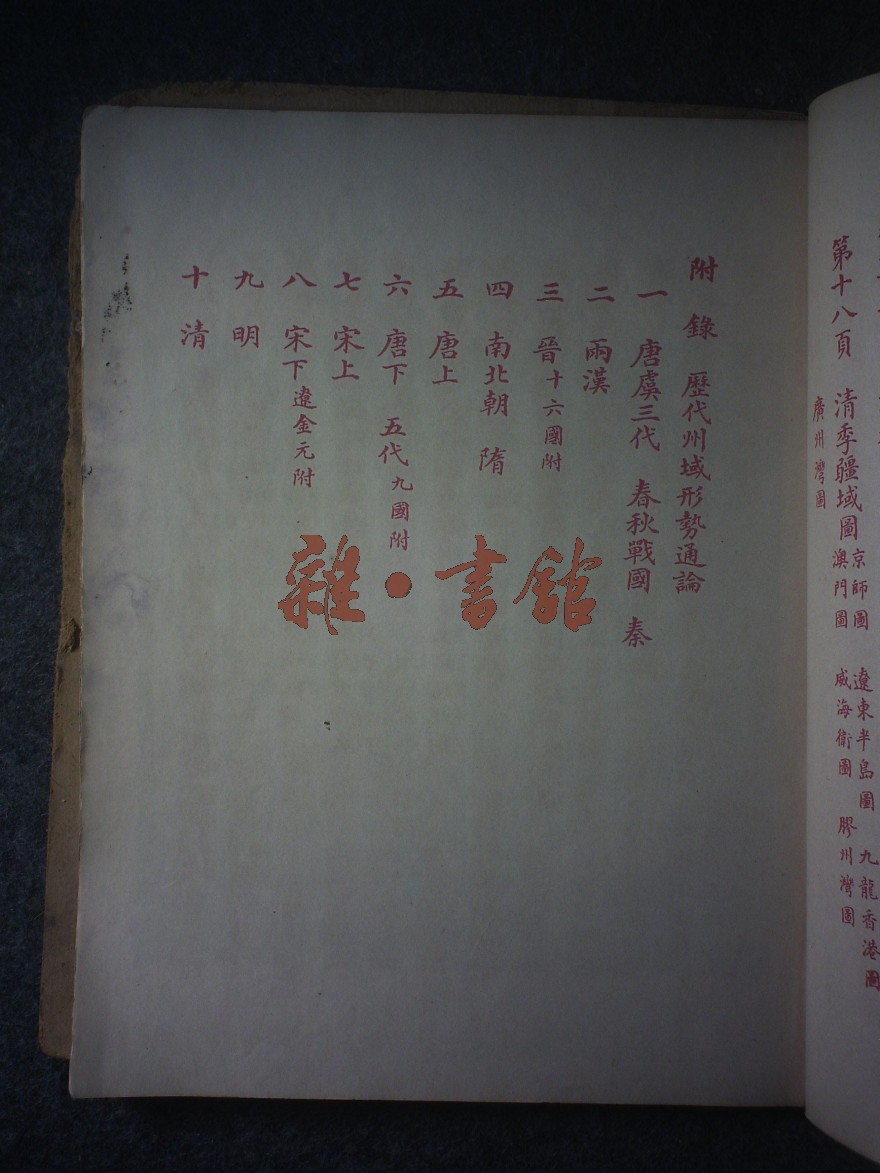 第十八頁 清季疆域圖 京師圖 遼東半島圖 九龍香港圖
澳門圖 威海衛圖 膠州灣圖
廣州灣圖
附錄 歷代州域形勢通論
一 唐虞三代 春秋戰國 秦
二 兩漢
三 晉十六國附
四 南北朝 隋
五 唐上
六 唐下 五代九國附
七 宋上
八 宋下遼金元附
九 明
十 清
雜·書館